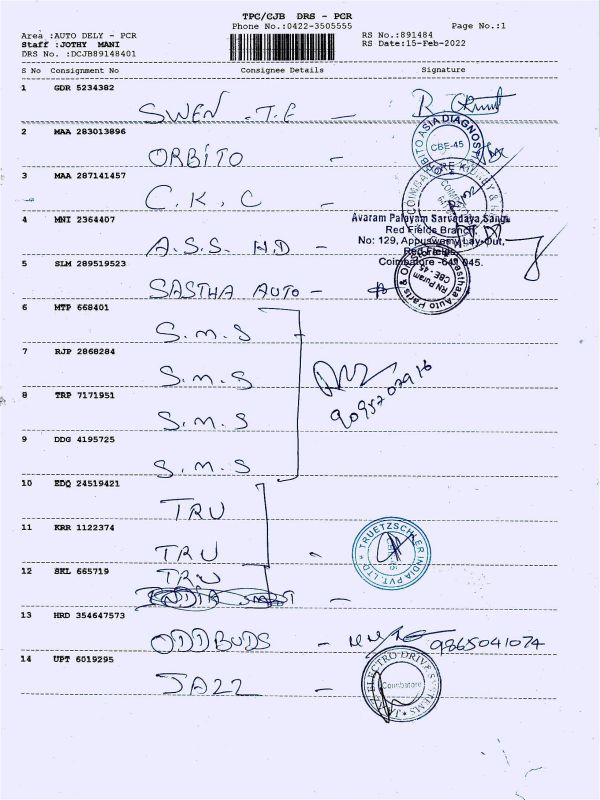 TPC/CJB DRS - PCR
Phone No.:0422-3505555 Page No.:1
Area :AUTO DELY - PCR RS No.:891484
Staff :JOTHY MANI RS Date:15-Feb-2022
DRS No. :DCJB89148401
S No Consignment No Consignee Details Signature
1 GDR 5234382
SWEN .T.E -
2 MAA 283013896
ORBITO -
ORBITO ASIA DIAGNOSTIC
CBE-45
3 MAA 287141457
C.K.C -
4 MNI 2364407
A.S.S. HD -
Avaram Palayam Sarvodaya Sangh
Red Fields Branch,
No: 129, Appuswamy Lay-Out,
Red Fields,
Coimbatore -641 045.
5 SLM 289519523
SASTHA AUTO -
RN Puram
CBE - 45
6 MTP 668401
S.M.S
7 RJP 2868284
S.M.S
8 TRP 7171951
S.M.S
9 DDG 4195725
S.M.S
10 EDQ 24519421
TRU
11 KRR 1122374
TRU -
TRUETZSCHLER INDIA PVT. LTD.
12 SKL 665719
TRU
13 HRD 354647573
ODDBUDS - 9865041074
14 UPT 6019295
JAZZ -
ELECTRO DRIVE SYSTEMS
Coimbatore